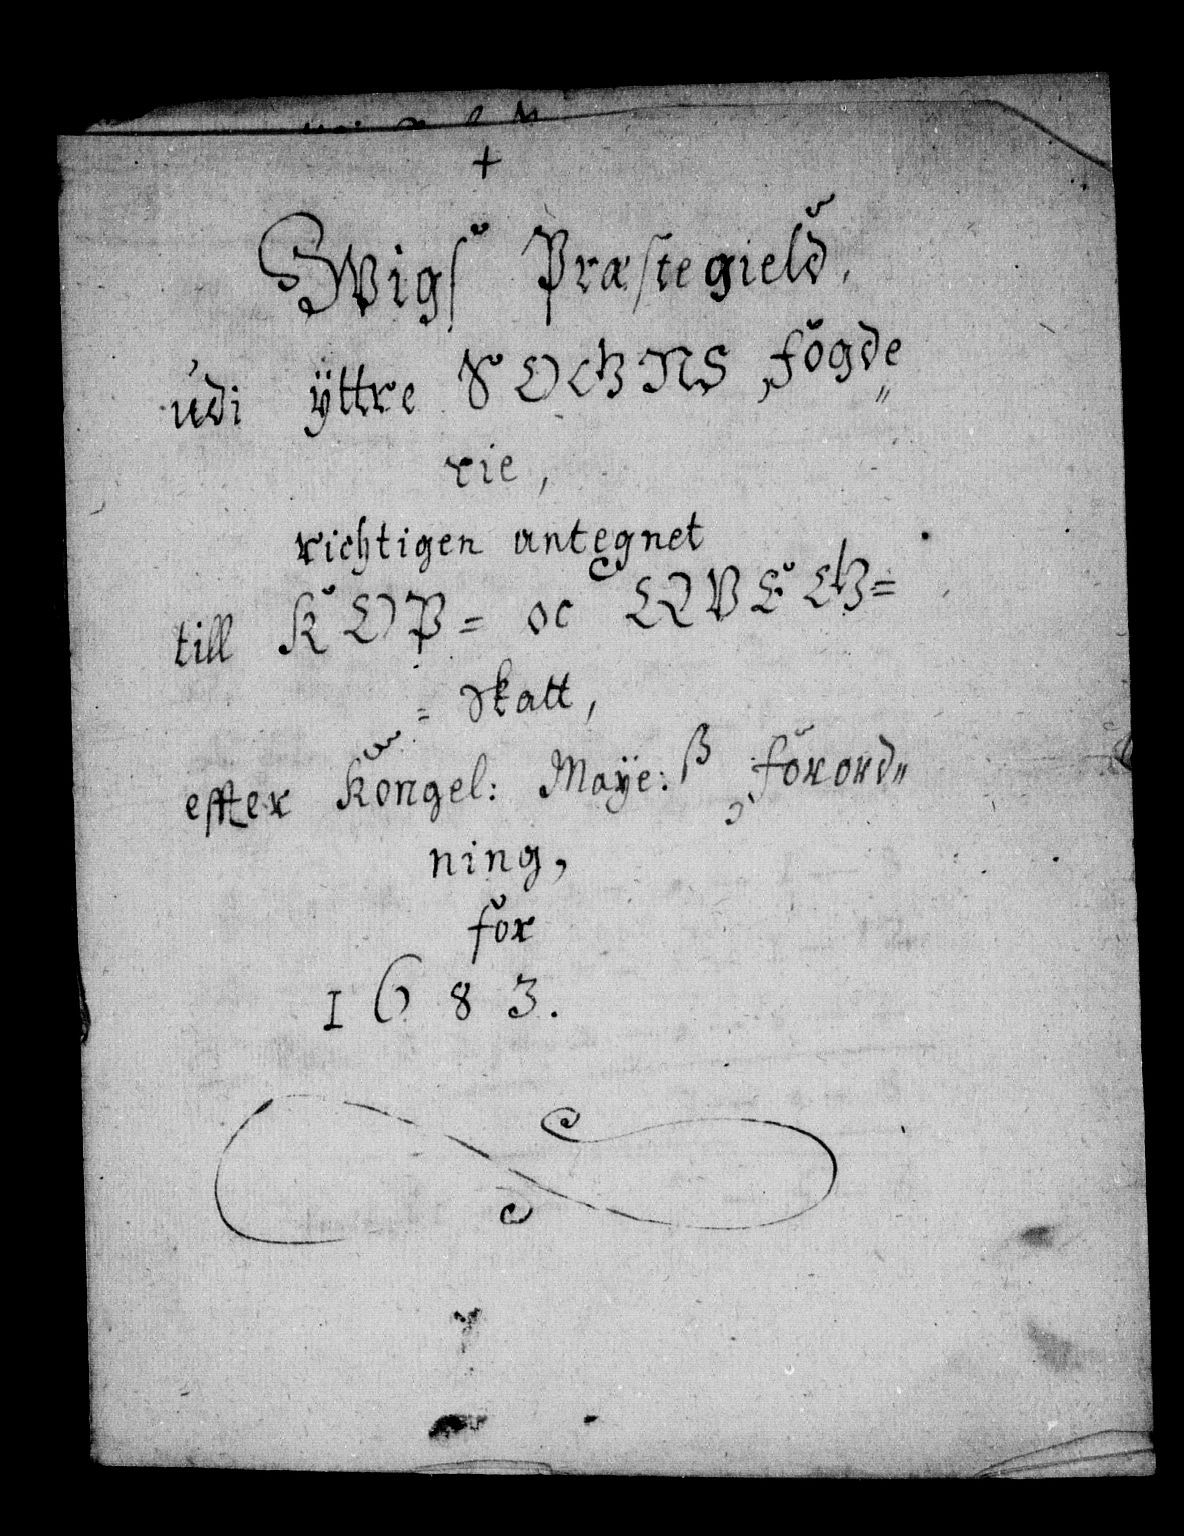 +
Wigs Præstegield,
udi ÿttre SOGNS fögde„
rie,
richtigen antegnet
till KOP= oc QVEG=
= skatt,
effter Kongel: Maÿe: ß forord„
ning,
för
1683.